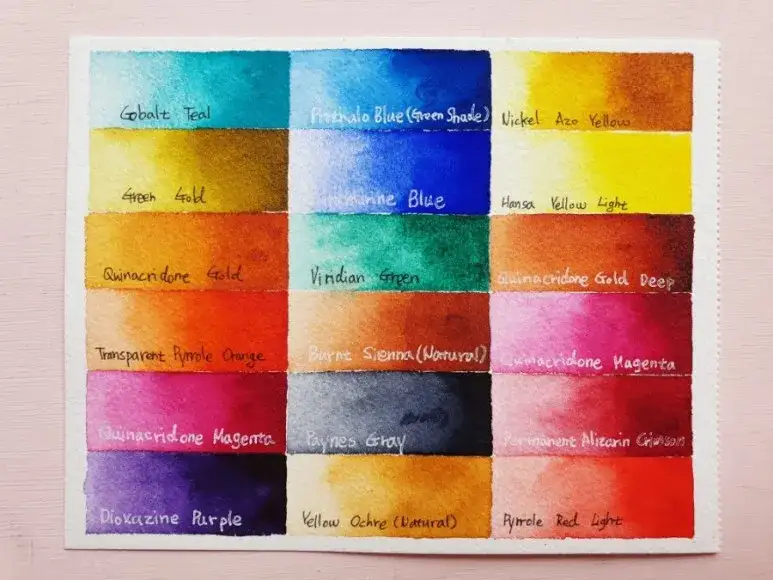 Cobalt Teal
Phthalo Blue (Green Shade)
Nickel Azo Yellow
Green Gold
Ultramarine Blue
Hansa Yellow Light
Quinacridone Gold
Viridian Green
Quinacridone Gold Deep
Transparent Pyrrole Orange
Burnt Sienna (Natural)
Quinacridone Magenta
Quinacridone Magenta
Paynes Gray
Permanent Alizarin Crimson
Dioxazine Purple
Yellow Ochre (Natural)
Pyrrole Red Light